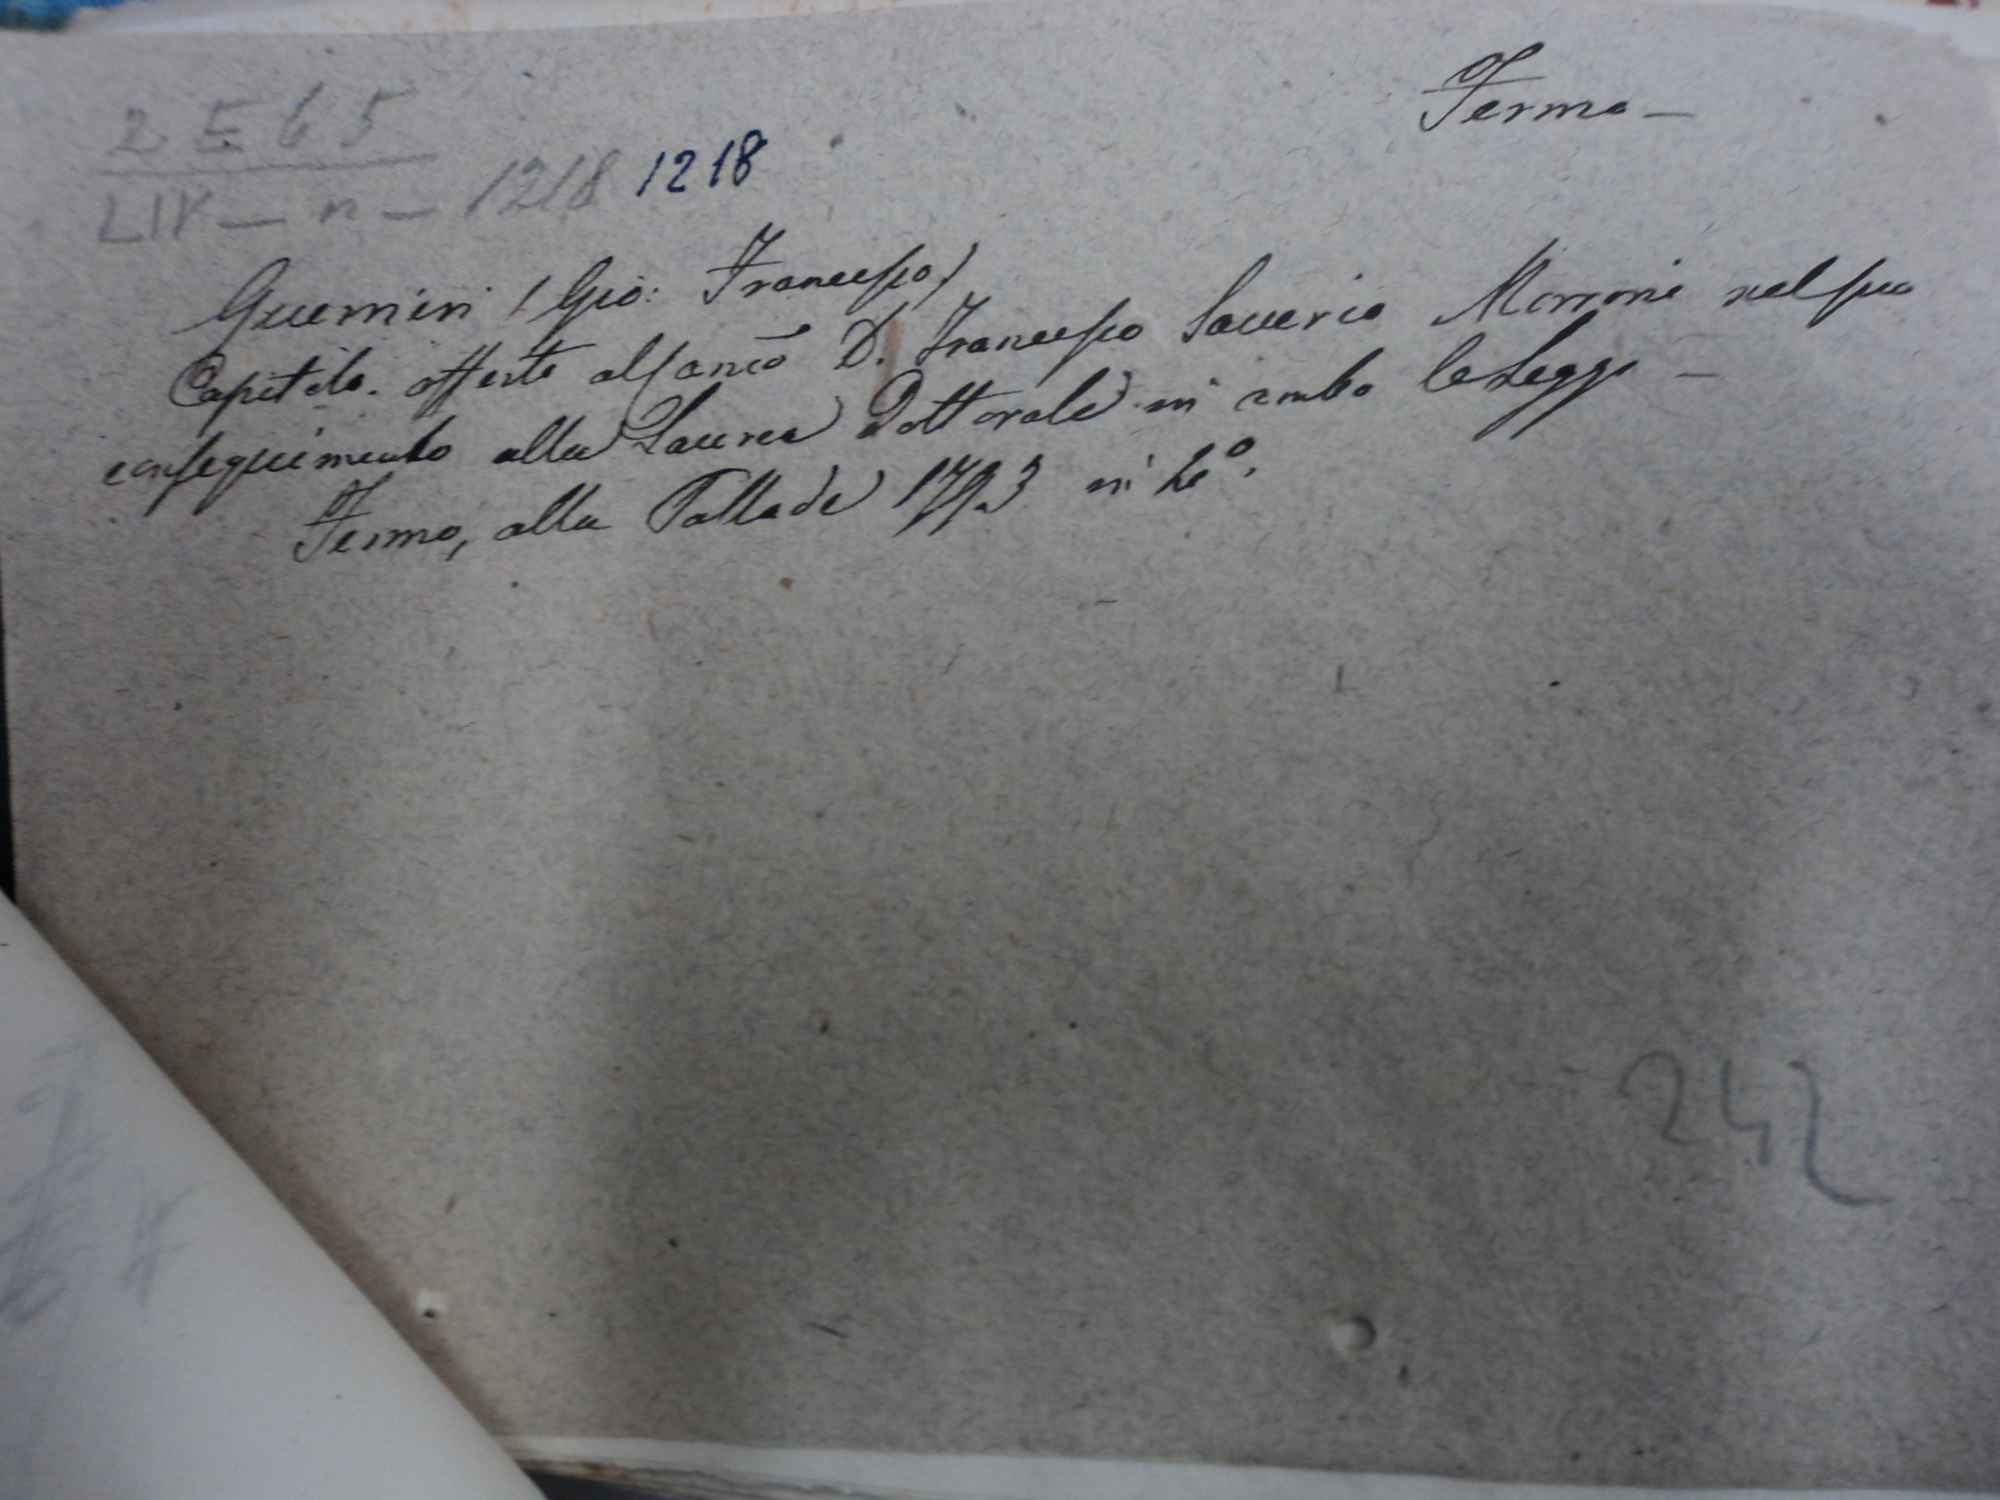 Fermo —
2 E 65
LIV — n — 1218 1218
Guerrieri / Gio: Francesco /
Capitolo. offerto al Sancō D. Francesco Saverio Morroni nel suo
conseguimento alla Laurea Dottorale in ambo le Leggi —
Fermo, alla Pallade 1793 in 4º.
242